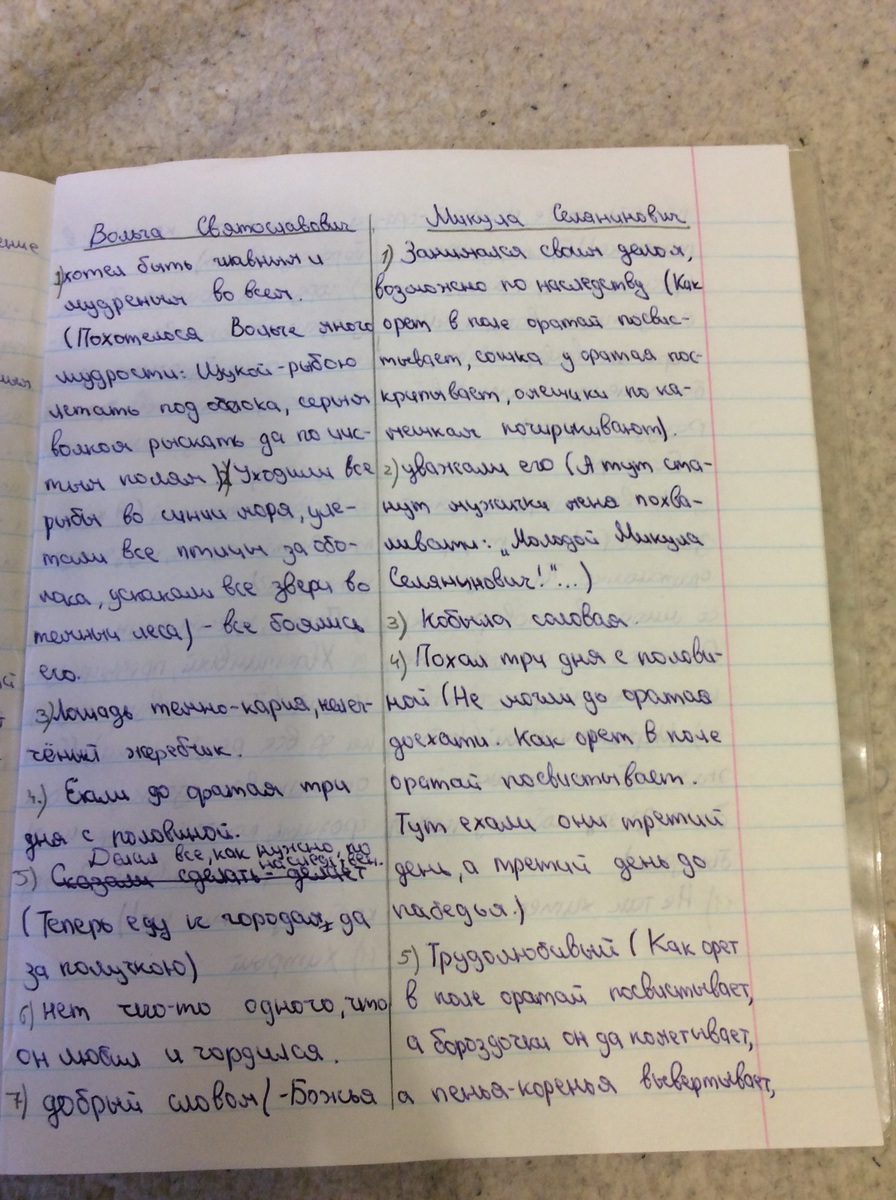 Вольга Святославович
1) хотел быть главным и
мудреным во всем.
(Похотелося Вольге много
мудрости: Щукой-рыбою
летать под облока, серым
волком рыскать да по чис-
тым полям) 2) (Уходили все
рыбы во синии моря, уле-
тали все птицы за обо-
лака, ускакали все звери во
темныи леса) - все боялись
его.
3) Лошадь темно-каряя, нелег-
чёный жеребчик.
4.) Ехали до оратая три
дня с половиной.
Делал все, как нужно, по
наследствен.
5) Сказали сделать - делает
(Теперь еду к городам, да
за получкою)
6) нет чего-то одного, что
он любил и гордился.
7) добрый словом (-Божья
Микула Селянинович
1) Занимался своим делом,
возможно по наследству (Как
орет в поле оратай посвис-
тывает, сошка у оратая пос-
крипывает, омешики по ка-
мешкам почиркивают).
2) уважали его (А тут ста-
нут мужички меня похва-
ливати: „Молодой Микула
Селянинович!"...)
3) Кобыла соловая.
4) Похал три дня с полови-
ной (Не могли до оратая
доехати. Как орет в поле
оратай посвистывает.
Тут ехали они третий
день, а третий день до
пабедья.)
5) Трудолюбивый (Как орет
в поле оратай посвистывает,
а бороздочки он да пометывает,
а пенья-коренья вывертывает,